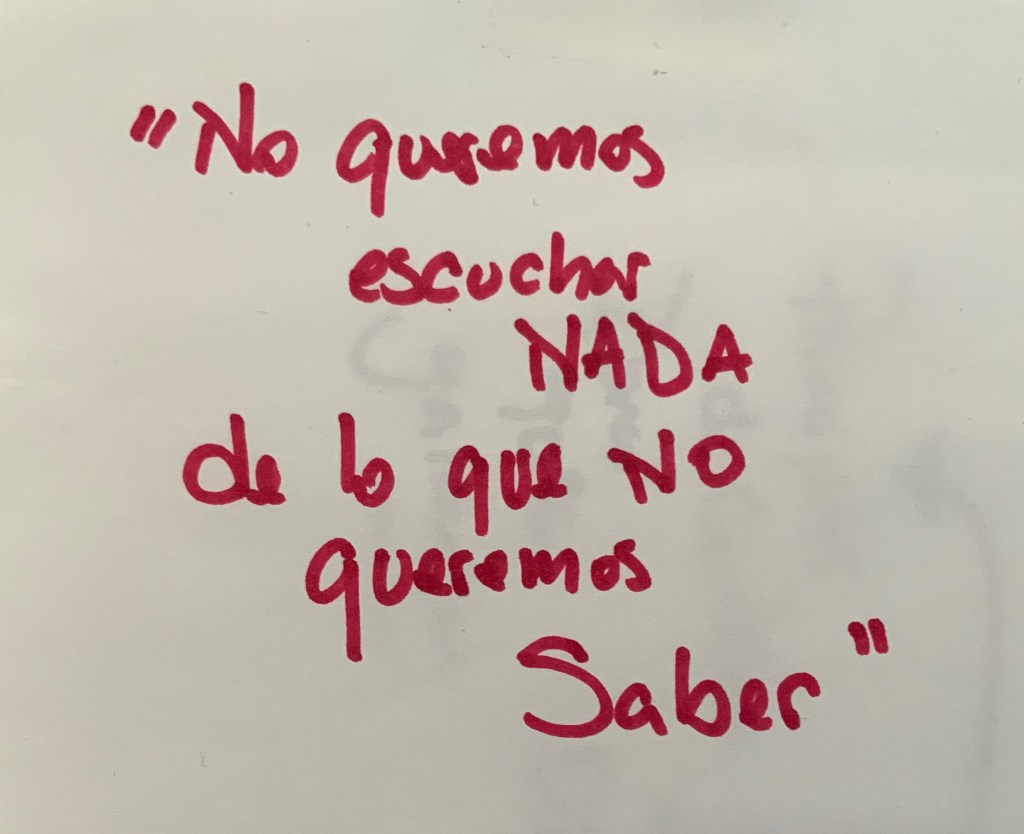 "No queremos
escuchar
NADA
de lo que NO
queremos
Saber"